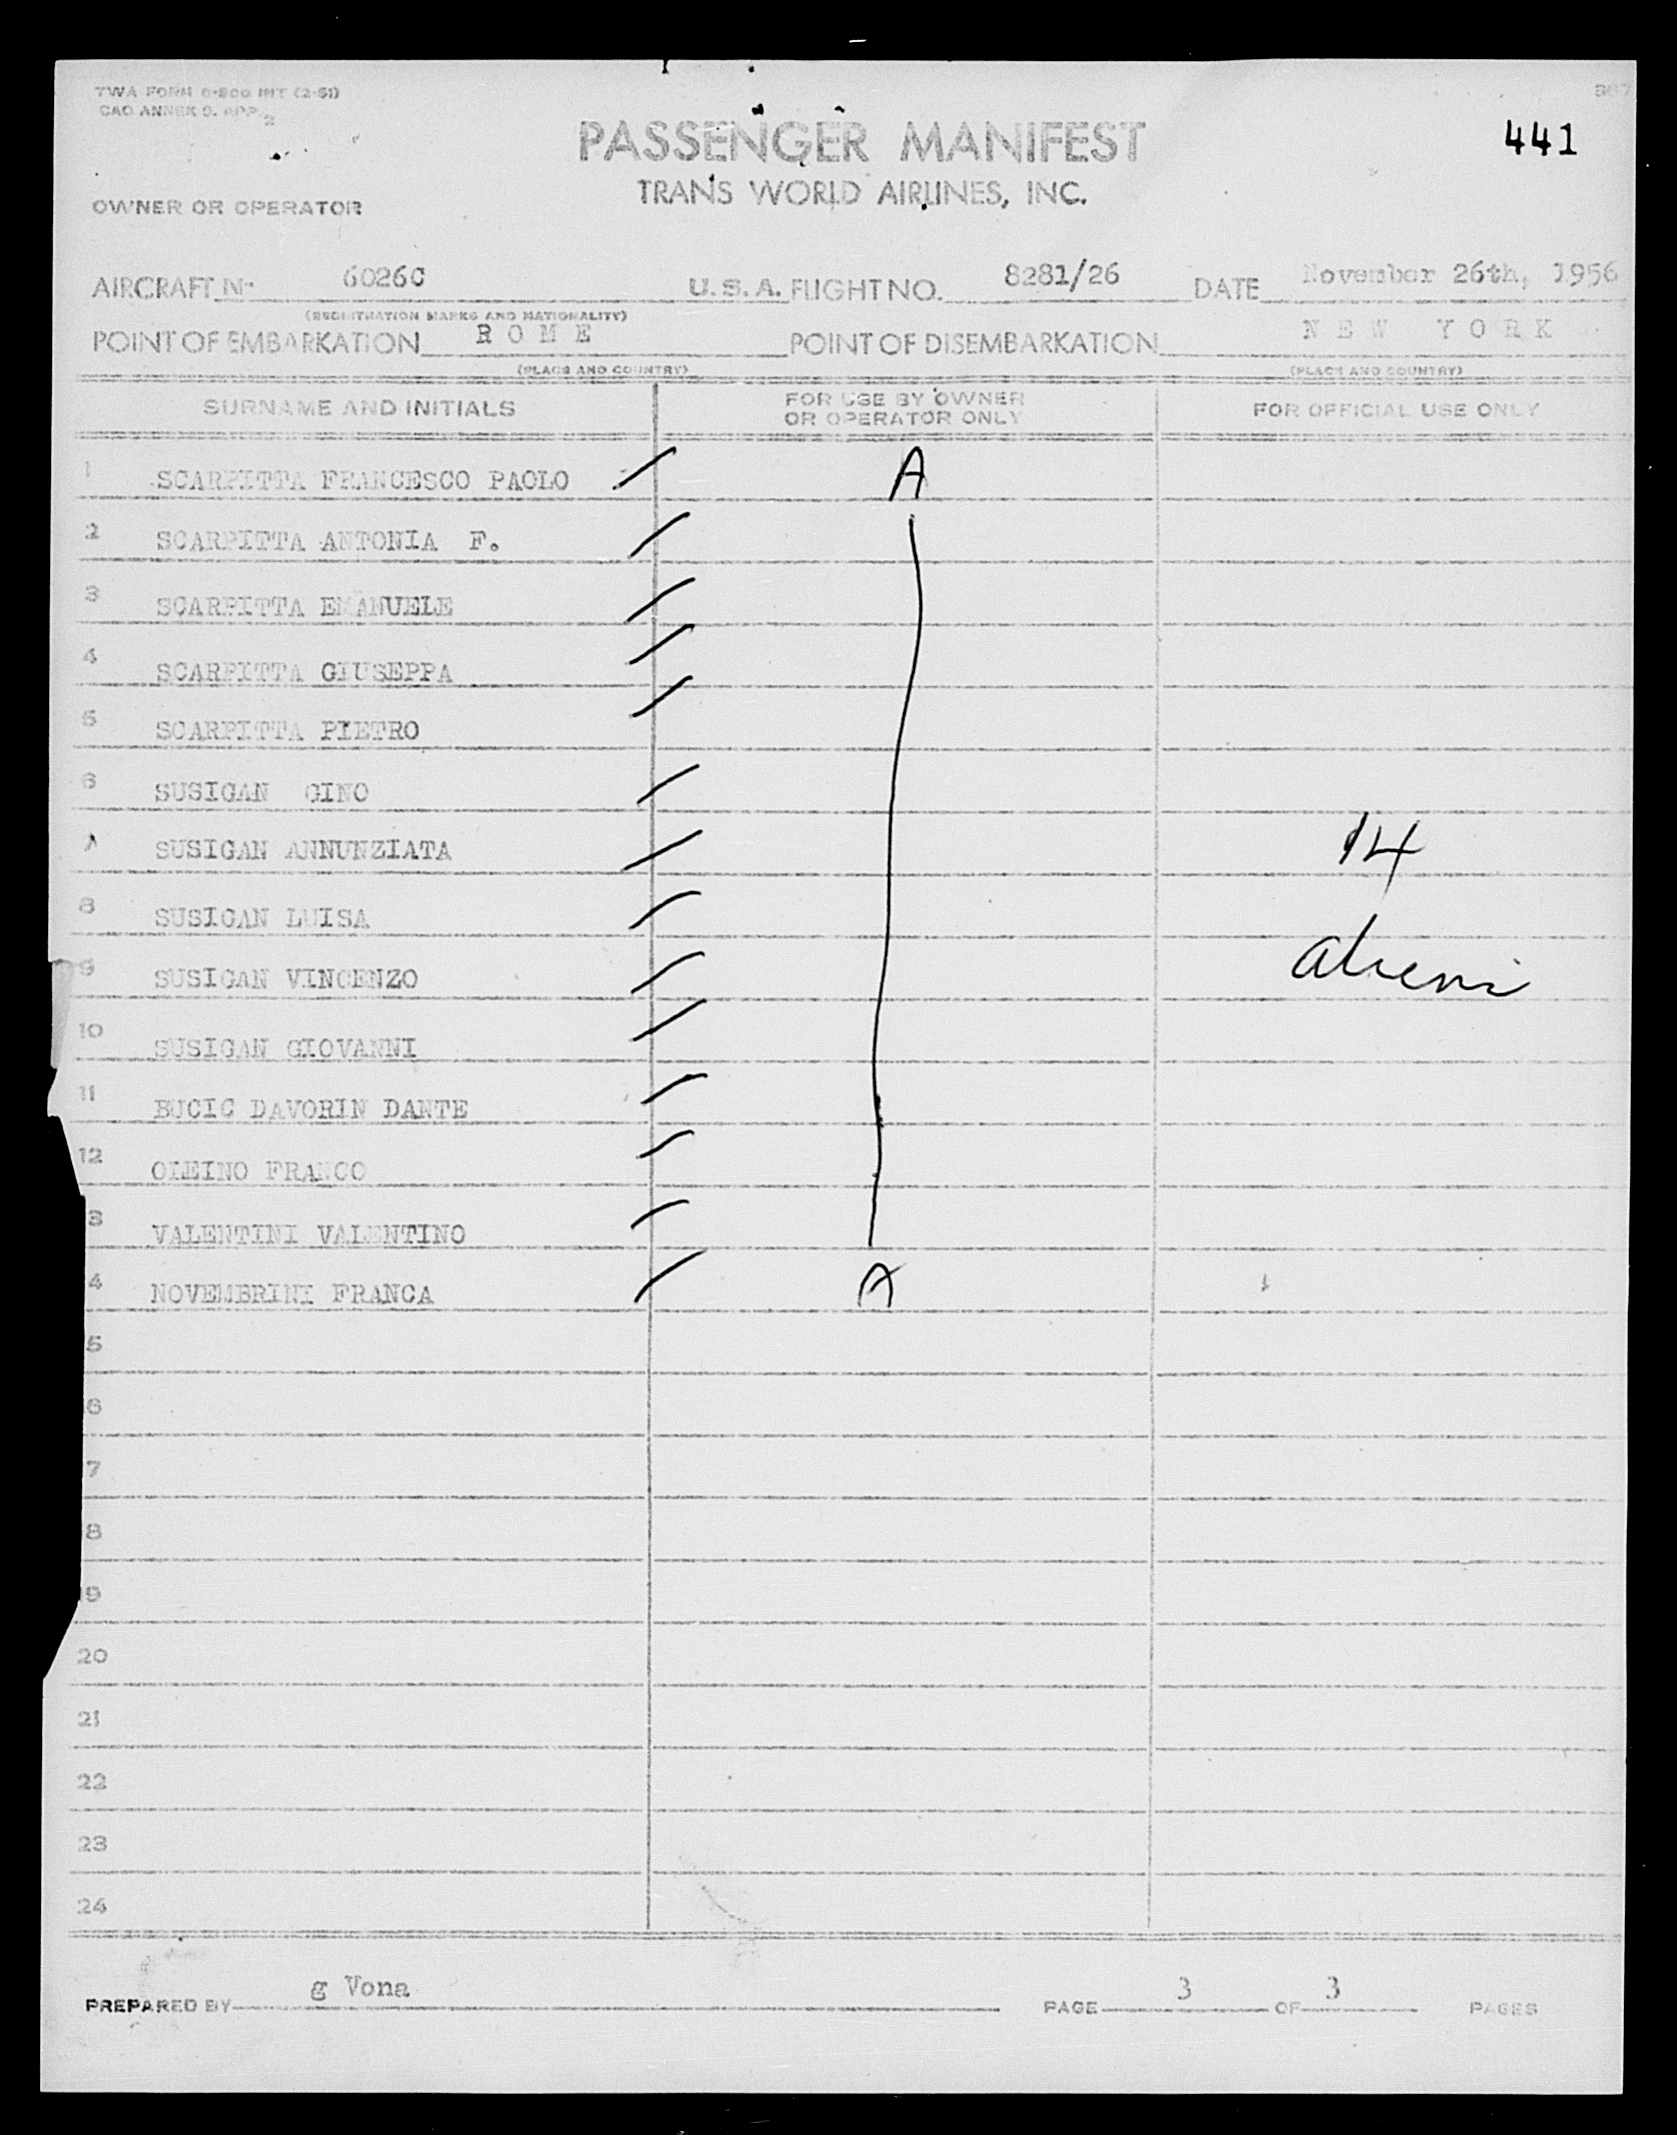 TWA FORM 0-800 INT (2-51)
CAO ANNEX 9. APP. 2
PASSENGER MANIFEST
441
TRANS WORLD AIRLINES, INC.
OWNER OR OPERATOR
AIRCRAFT Nr 6026C U.S.A. FLIGHT NO. 8281/26 DATE November 26th, 1956
(REGISTRATION MARKS AND NATIONALITY)
POINT OF EMBARKATION ROME POINT OF DISEMBARKATION NEW YORK
(PLACE AND COUNTRY) (PLACE AND COUNTRY)
SURNAME AND INITIALS FOR USE BY OWNER OR OPERATOR ONLY FOR OFFICIAL USE ONLY
1 SCARPITTA FRANCESCO PAOLO A
2 SCARPITTA ANTONIA F.
3 SCARPITTA EMANUELE
4 SCARPITTA GIUSEPPA
5 SCARPITTA PIETRO
6 SUSIGAN GINO
SUSIGAN ANNUNZIATA 14
8 SUSIGAN LUISA
9 SUSIGAN VINCENZO aliens
10 SUSIGAN GIOVANNI
11 BUCIC DAVORIN DANTE
12 OLEINO FRANCO
3 VALENTINI VALENTINO
4 NOVEMBRINI FRANCA A
5
6
7
8
9
20
21
22
23
24
PREPARED BY g Vona PAGE 3 OF 3 PAGES